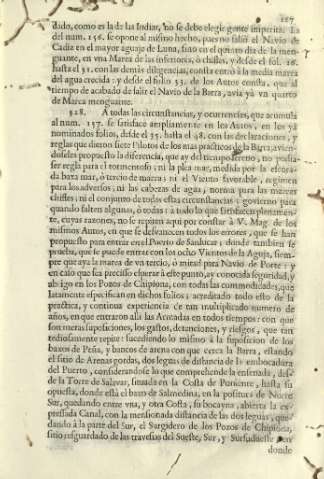 227
dido, como es la de las Indias, no se debe elegir gente imperita. La
del num. 156. se opone al mismo hecho, pues no salió el Navio de
Cadiz en el mayor aguaje de Luna, sino en el quinto dia de la men-
guante, en vna Marea de las inferiores, ò chistes, y desde el fol. 26.
hasta el 31. con las demás diligencias, consta entró à la media marea
del agua crecida: y desde el folio 53. de los Autos consta, que al
tiempo de acabado de salir el Navio de la Barra, avia yà vn quarto
de Marea menguante.
928. A todas las circunstancias, y ocurrencias, que acumula
al num. 157. se satisface amplissimamente en los Autos, en los yà
nominados folios, desde el 35. hasta el 48. con las declaraciones, y
reglas que dieron siete Pilotos de los mas practicos de la Barra, avien-
doseles propuesto la diferencia, que ay del tiempo sereno, no podia
ser regla para el tormentoso: ni la plea mar, medida por la escora-
da baxa mar, ò tercio de marea: ni el Viento favorable, regimen
para los adversos: ni las cabezas de agua, norma para las mareas
chistes: ni el conjunto de todas estas circunstancias: govierno para
quando falten algunas, ò todas: à todo lo que satisfacen plenamen-
te, cuyas razones, no se repiten aqui por constar à V. Mag. de los
mismos Autos, en que se desvanecen todos los errores, que se han
propuesto para entrar en el Puerto de Sanlucar: donde tambien se
prueba, que se puede entrar con los ocho Vientos de la Aguja, siem-
pre que aya la marea de vn tercio, ò mitad para Navio de Porte: y
en caso que sea preciso esperar à este punto, ay conocida seguridad, y
abrigo en los Pozos de Chipiona, con todas las commodidades, que
latamente especifican en dichos folios: acreditado todo esto de la
practica, y continua experiencia de tan multiplicado numero de
años, en que entraron alli las Armadas en todos tiempos: con que
son meras suposiciones, los gastos, detenciones, y riesgos, que tan
tediosamente repite: sucediendo lo mismo à la suposicion de los
baxos de Peña, y bancos de arena con que cerca la Barra, estando
el sitio de Arenas gordas, dos leguas de distancia de la embocadura
del Puerto, considerandose lo que comprehende la ensenada, des-
de la Torre de Salavar, situada en la Costa de Poniente, hasta su
opuesta, donde està el baxo de Salmedina, en la positura de Norte
Sur, quedando entre vna, y otra Costa, su bocayna, abierta la ex-
pressada Canal, con la mencionada distancia de las dos leguas, que-
dando à la parte del Sur, el Surgidero de los Pozos de Chipiona,
sitio resguardado de las travesias del Sueste, Sur, y Sursudueste
donde